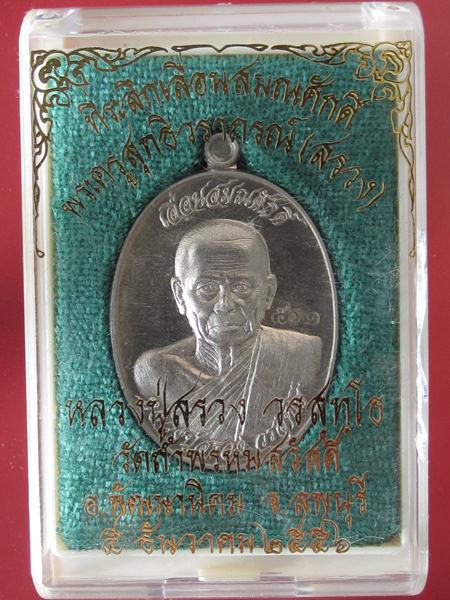 ที่ระลึกเลื่อนสมณศักดิ์
พระครูสุทธิวราภรณ์ (สรวง)
เลื่อนสมณศักดิ์
๕๑๑
หลวงปู่สรวง วรสุทฺโธ
วัดถ้ำพรหมสวัสดิ์
อ.พัฒนานิคม จ.ลพบุรี
๕ ธันวาคม ๒๕๕๖